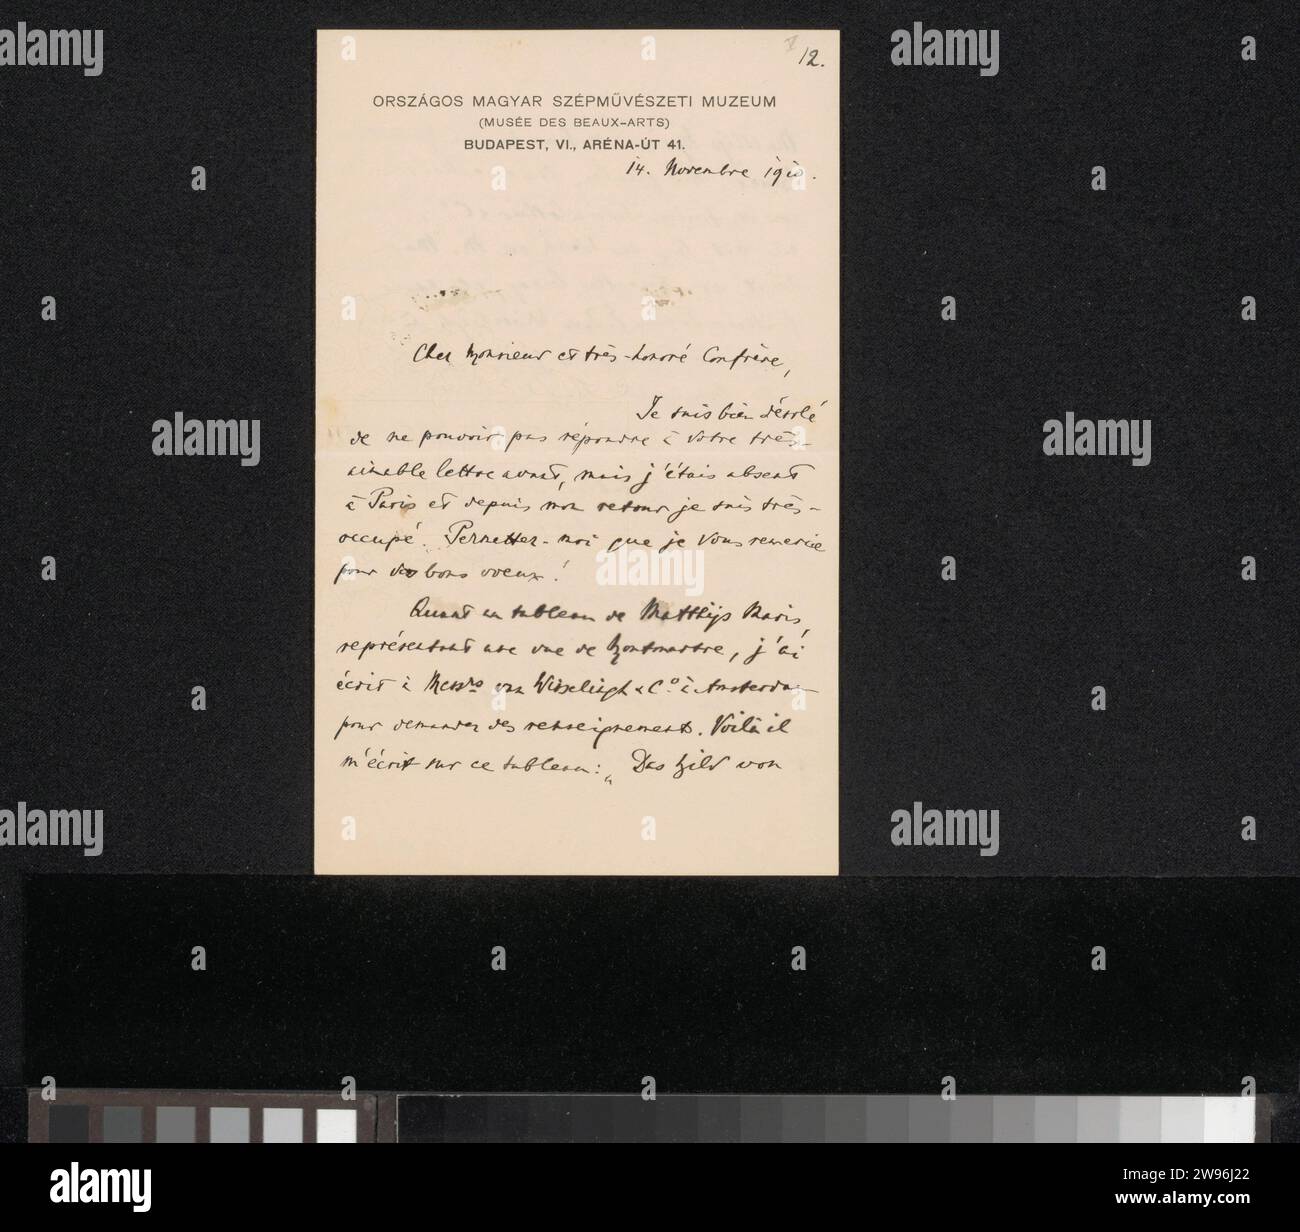 12.
ORSZÁGOS MAGYAR SZÉPMŰVÉSZETI MUZEUM
(MUSÉE DES BEAUX-ARTS)
BUDAPEST, VI., ARÉNA-ÚT 41.
14. Novembre 1910.
Cher Monsieur et très-honoré Confrère,
Je suis bien désolé
de ne pouvoir pas répondre à votre très-
aimable lettre avant, mais j'étais absent
à Paris et depuis mon retour je suis très-
occupé. Permettez-moi que je vous remercie
pour des bons voeux!
Quant au tableau de Matthijs Maris,
représentant une vue de Montmartre, j'ai
écrit à Messrs van Wisselingh & Co à Amsterdam
pour demander des renseignements. Voilà il
m'écrit sur ce tableau: „Das Bild von
alamy
Image ID: 2W96J22
www.alamy.com